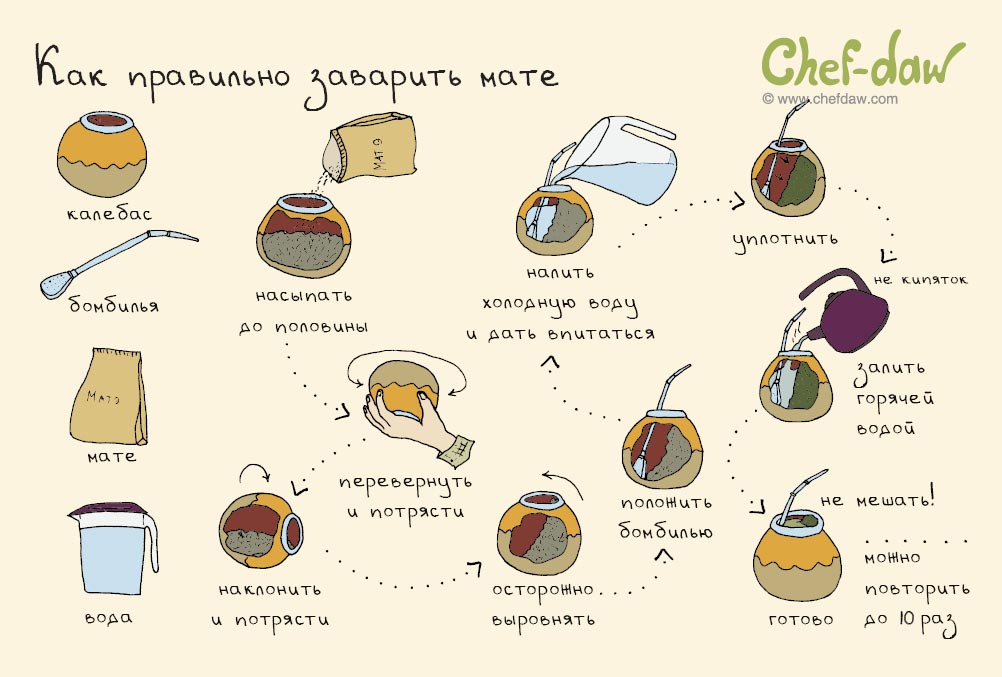 Как правильно заварить мате
Chef-daw
© www.chefdaw.com
калебас
бомбилья
Матэ
мате
вода
матэ
насыпать
до половины
перевернуть
и потрясти
наклонить
и потрясти
осторожно...
выровнять
положить
бомбилью
налить
холодную воду
и дать впитаться
уплотнить
не кипяток
залить
горячей
водой
не мешать!
готово
можно
повторить
до 10 раз